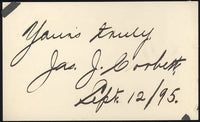 Yours truly,
Jas. J. Corbett,
Sept. 12/95.